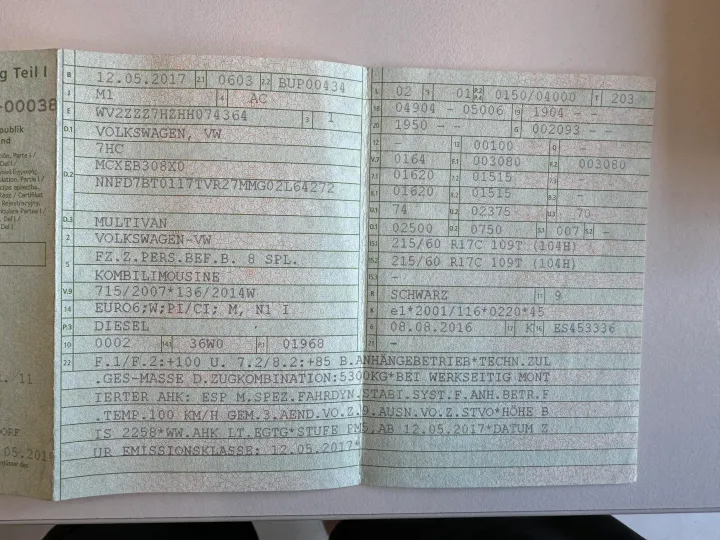 g Teil I
-00038
publik
nd
B 12.05.2017 2.1 0603 2.2 BUP00434
J M1 4 AC
E WV2ZZZ7HZHH074364 3 1
D.1 VOLKSWAGEN, VW
7HC
D.2 MCXEB308X0
NNFD7BT0117TVR27MMG02L64272
D.3 MULTIVAN
2 VOLKSWAGEN-VW
5 FZ.Z.PERS.BEF.B. 8 SPL.
KOMBILIMOUSINE
V.9 715/2007*136/2014W
14 EURO6;W;PI/CI; M, N1 I
P.3 DIESEL
10 0002 14.1 36W0 P.1 01968
L 02 9 01 P.2 P.4 0150/04000 T 203
18 04904 - 05006 19 1904 - -
20 1950 - - G 002093 - -
12 - 13 00100 Q -
V.7 0164 F.1 003080 F.2 003080
7.1 01620 7.2 01515 7.3 -
8.1 01620 8.2 01515 8.3 -
U.1 74 U.2 02375 U.3 70
O.1 02500 O.2 0750 S.1 007 S.2 -
15.1 215/60 R17C 109T (104H)
15.2 215/60 R17C 109T (104H)
15.3 -
R SCHWARZ 11 9
K e1*2001/116*0220*45
6 08.08.2016 17 K 16 ES453336
21 -
22 F.1/F.2:+100 U. 7.2/8.2:+85 B.ANHÄNGEBETRIEB*TECHN.ZUL
.GES-MASSE D.ZUGKOMBINATION:5300KG*BEI WERKSEITIG MONT
IERTER AHK: ESP M.SPEZ.FAHRDYN.STABI.SYST.F.ANH.BETR.F
.TEMP.100 KM/H GEM.3.AEND.VO.Z.9.AUSN.VO.Z.STVO*HÖHE B
IS 2258*WW.AHK LT.EGTG*STUFE PM5 AB 12.05.2017*DATUM Z
UR EMISSIONSKLASSE: 12.05.2017*
. 11
ORF
.05.201